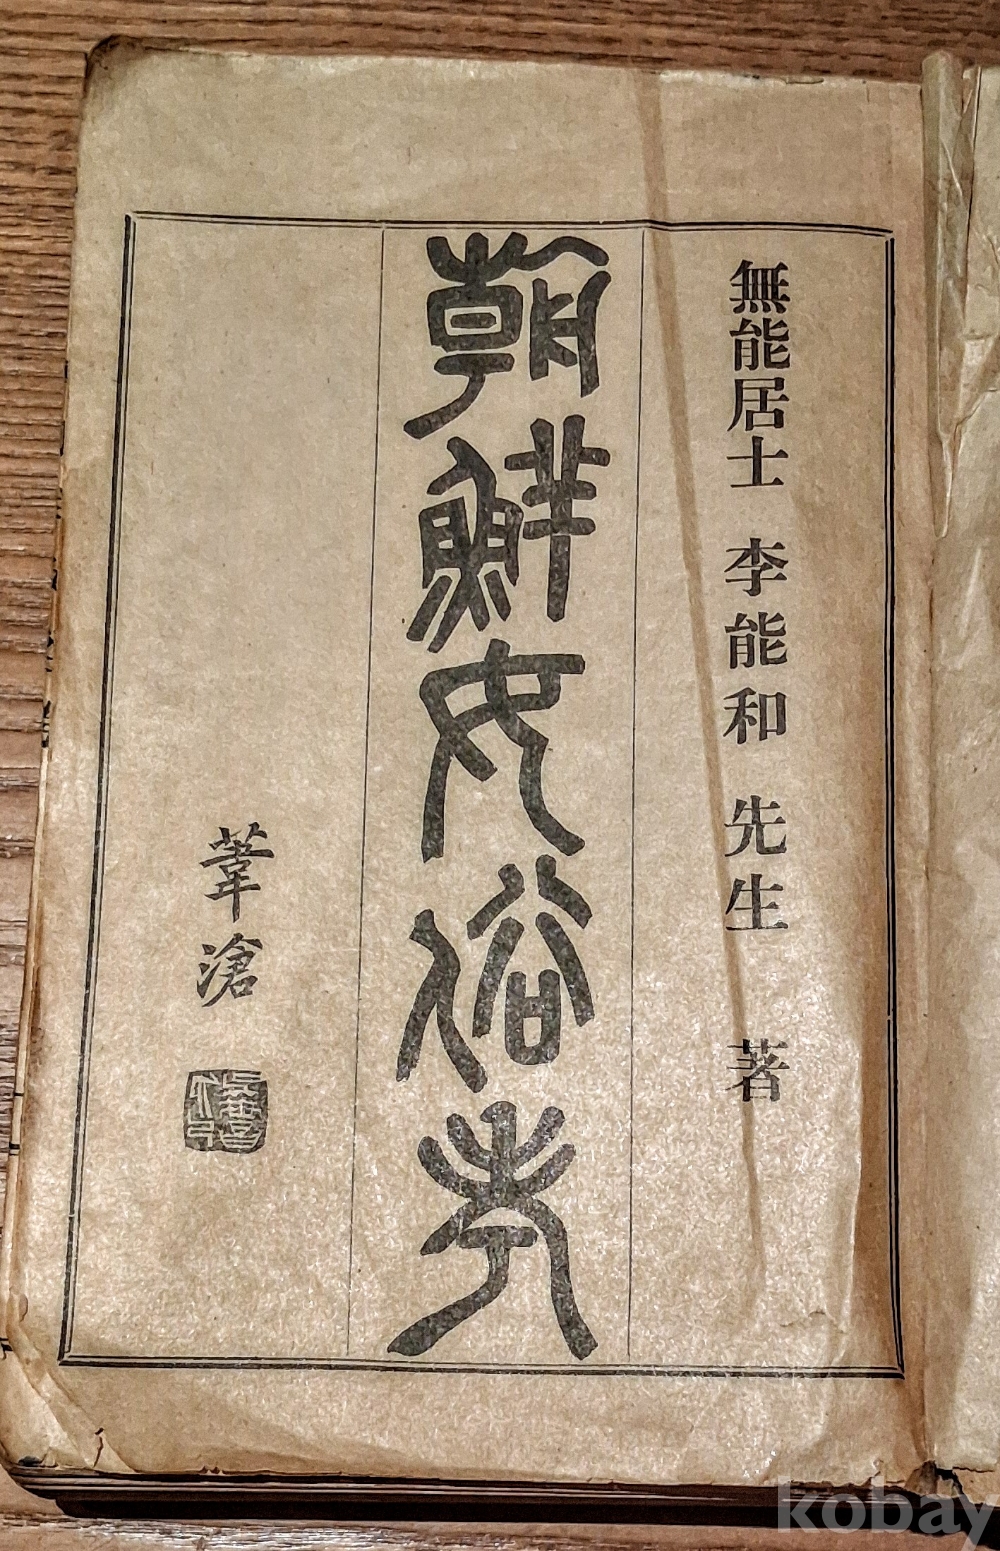 無能居士 李能和 先生 著
朝鮮女俗考
葦滄
kobay